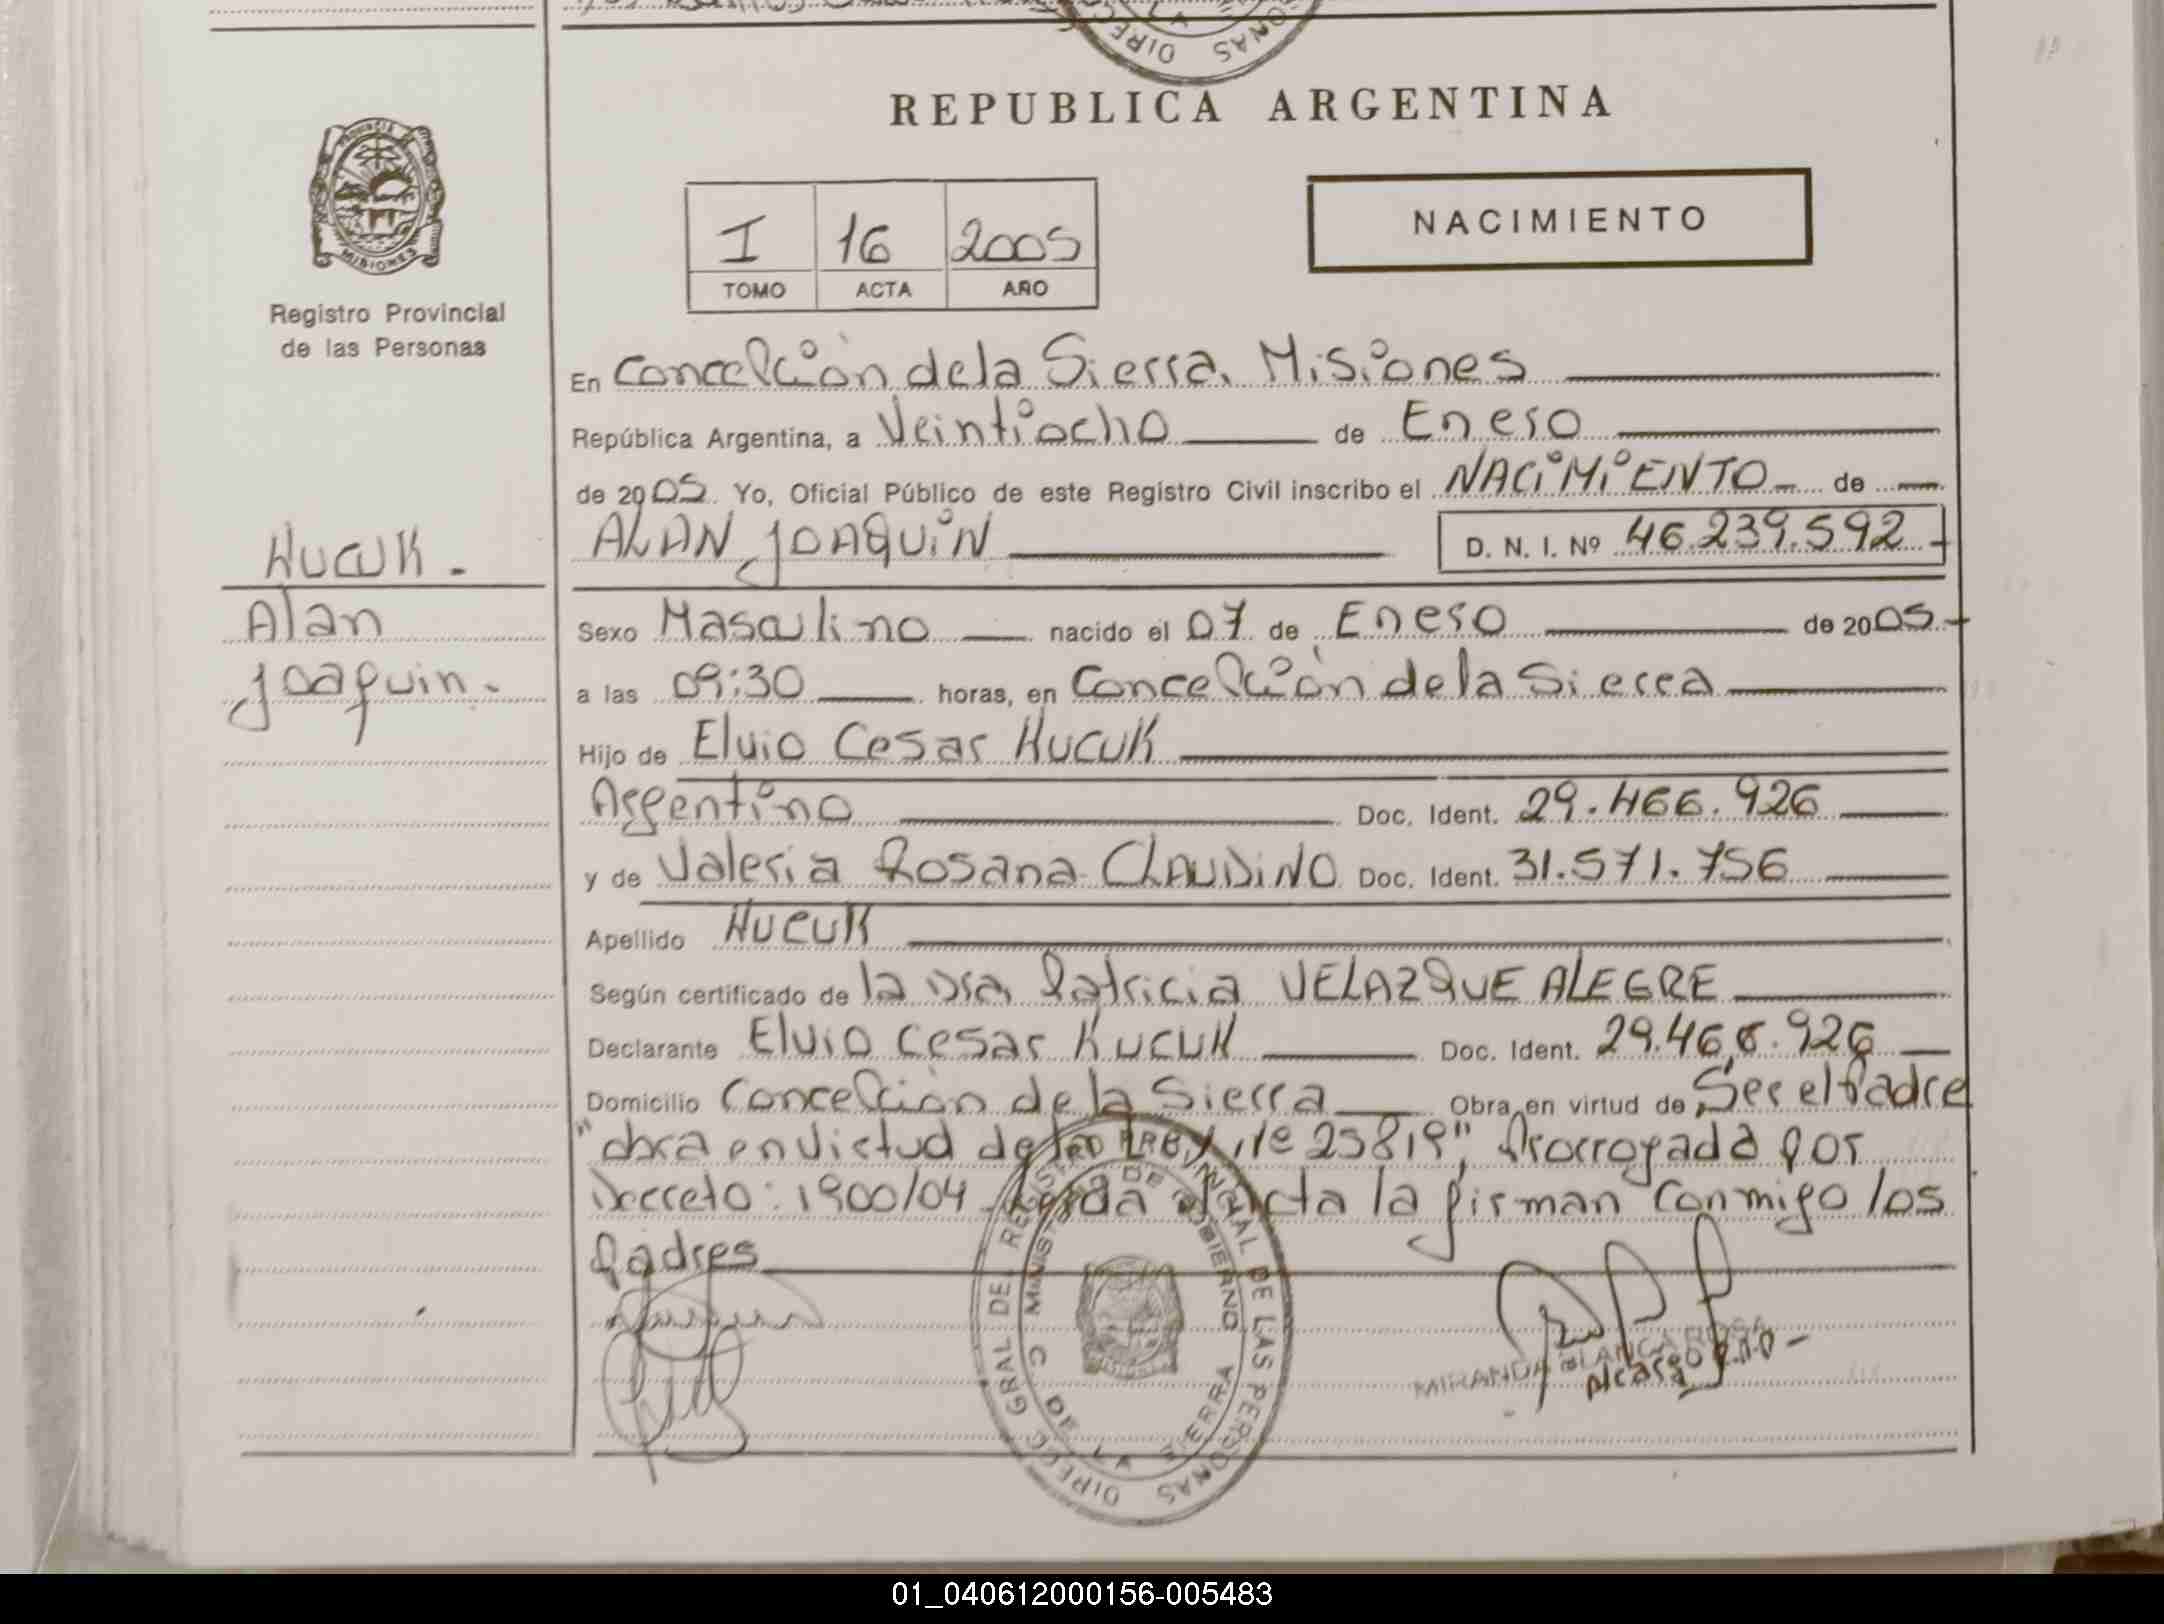 REPUBLICA ARGENTINA
PROVINCIA DE
MISIONES
Registro Provincial
de las Personas
I 16 2005
TOMO ACTA AÑO
NACIMIENTO
En Concepción de la Sierra, Misiones
República Argentina, a Veintiocho de Enero
de 2005. Yo, Oficial Público de este Registro Civil inscribo el NACIMIENTO de
ALAN JOAQUIN D. N. I. Nº 46.239.592
KUCUK.
Alan
Joaquin.
Sexo Masculino nacido el 07 de Enero de 2005
a las 09:30 horas, en Concepción de la Sierra
Hijo de Elvio Cesar KUCUK
Argentino Doc. Ident. 29.466.926
y de Valeria Rosana CLAUDINO Doc. Ident. 31.571.756
Apellido KUCUK
Según certificado de la Dra. Patricia VELAZQUE ALEGRE
Declarante Elvio Cesar KUCUK Doc. Ident. 29.466.926
Domicilio Concepción de la Sierra Obra en virtud de Ser el Padre
"obra en virtud de la Ley Nº 25819", Prorrogada por
Decreto: 1900/04 Leida el Acta la firman conmigo los
Padres
DIREC. GRAL DEL REGISTRO PROVINCIAL DE LAS PERSONAS
MINISTERIO DE GOBIERNO
C DE LA SIERRA
MIRANDA BLANCA ROSA
Acargo R.P.P
01_040612000156-005483